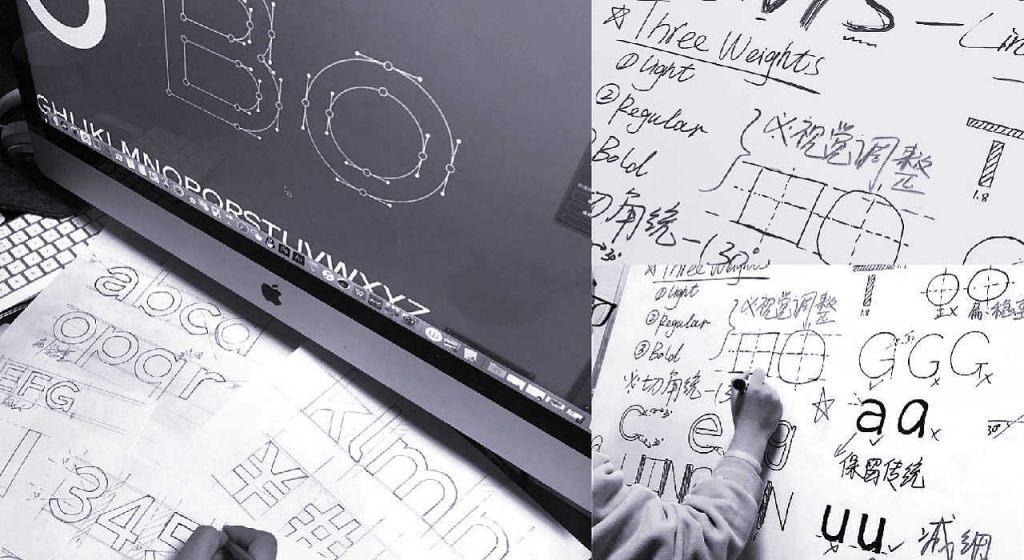 BO
GHIJKLMNOPQRSTUVWXYZ
abcd
opqr
EFG
klmn
345
¥#
Three Weights
①Light
②Regular
Bold
※视觉调整
切角统一(30°
1.8
Three Weights
①Light
②Regular
③Bold
※视觉调整
※切角统一(3
G G G
C e g
a a
保留传统
30°
N
u u 减細